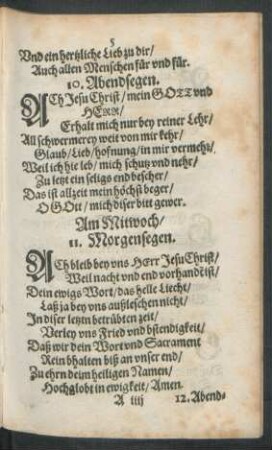 5
Vnd ein hertzliche Lieb zu dir/
Auch allen Menschen für vnd für.
10. Abendsegen.
ACh Jesu Christ/ mein GOTT vnd
HERR/
Erhalt mich nur bey reiner Lehr/
All schwermerey weit von mir kehr/
Glaub/ Lieb/ hofnung/ in mir vermehr/
Weil ich hie leb/ mich schutz vnd nehr/
Zu letzt ein seligs end bescher/
Das ist allzeit mein höchst beger/
O GOtt/ mich diser bitt gewer.
Am Mitwoch/
11. Morgensegen.
ACh bleib bey vns HErr Jesu Christ/
Weil nacht vnd end vorhandē ist/
Dein ewigs Wort/ das helle Liecht/
Laß ja bey vns außleschen nicht/
In diser letzten betrübten zeit/
Verley vns Fried vnd bstendigkeit/
Daß wir dein Wort vnd Sacrament
Rein bhalten biß an vnser end/
Zu ehrn deim heiligen Namen/
Hochglobt in ewigkeit/ Amen.
A iiij 12. Abend-